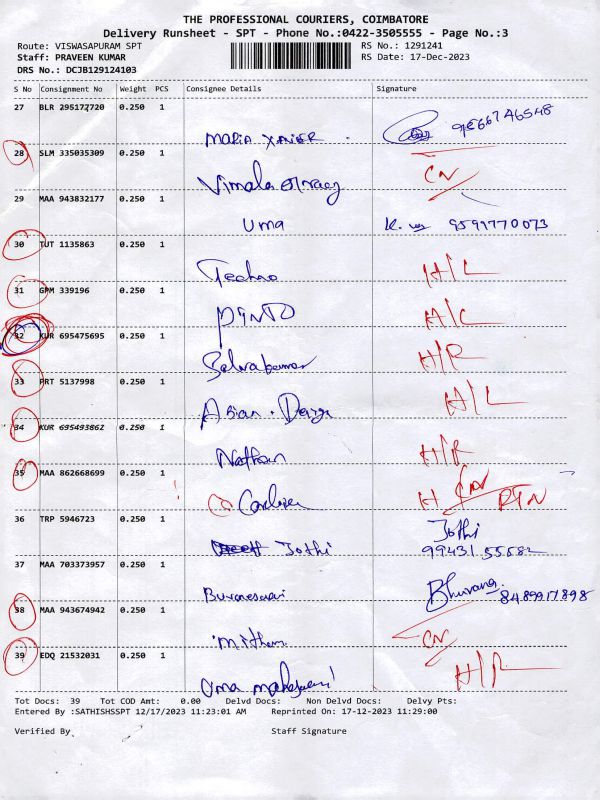 THE PROFESSIONAL COURIERS, COIMBATORE
Delivery Runsheet - SPT - Phone No.:0422-3505555 - Page No.:3
Route: VISWASAPURAM SPT RS No.: 1291241
Staff: PRAVEEN KUMAR RS Date: 17-Dec-2023
DRS No.: DCJB129124103
S No Consignment No Weight PCS Consignee Details Signature
27 BLR 295172720 0.250 1
MARIA XAVIER 9566746548
28 SLM 335035309 0.250 1
Vimala CN
29 MAA 943832177 0.250 1
Uma 9591770073
30 TUT 1135863 0.250 1
Techno H/L
31 GPM 339196 0.250 1
PINTO H/L
32 KUR 695475695 0.250 1
Selvakumar H/R
33 PRT 5137998 0.250 1
Asian H/L
34 KUR 695493862 0.250 1
Nathan H/R
35 MAA 862668699 0.250 1
H CN RTN
36 TRP 5946723 0.250 1
Jothi Jothi
99431 55682
37 MAA 703373957 0.250 1
Buvaneswari Bhuvana 8489917898
38 MAA 943674942 0.250 1
CN
39 EDQ 21532031 0.250 1
Uma maheswari H/R
Tot Docs: 39 Tot COD Amt: 0.00 Delvd Docs: Non Delvd Docs: Delvy Pts:
Entered By :SATHISHSSPT 12/17/2023 11:23:01 AM Reprinted On: 17-12-2023 11:29:00
Verified By Staff Signature